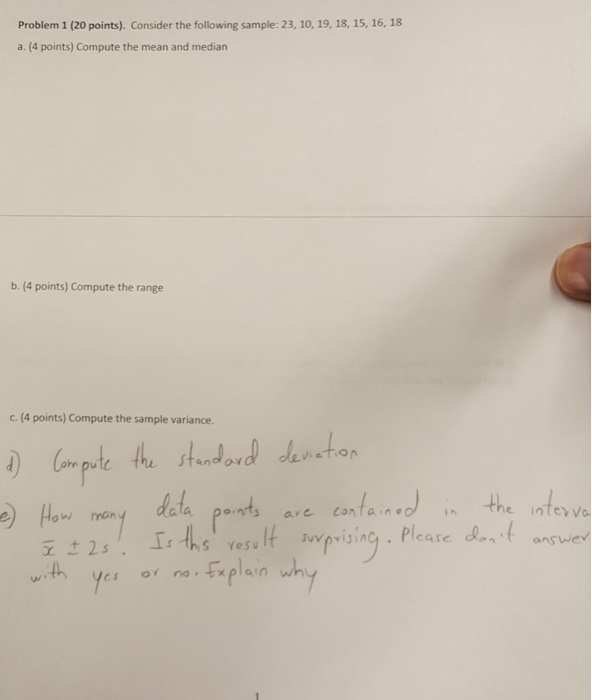 Problem 1 (20 points). Consider the following sample: 23, 10, 19, 18, 15, 16, 18
a. (4 points) Compute the mean and median
b. (4 points) Compute the range
c. (4 points) Compute the sample variance.
d) Compute the standard deviation
e) How many data points are contained in the interva
x̄ ± 2s! Is this result surprising. Please don't answer
with yes or no. Explain why
1